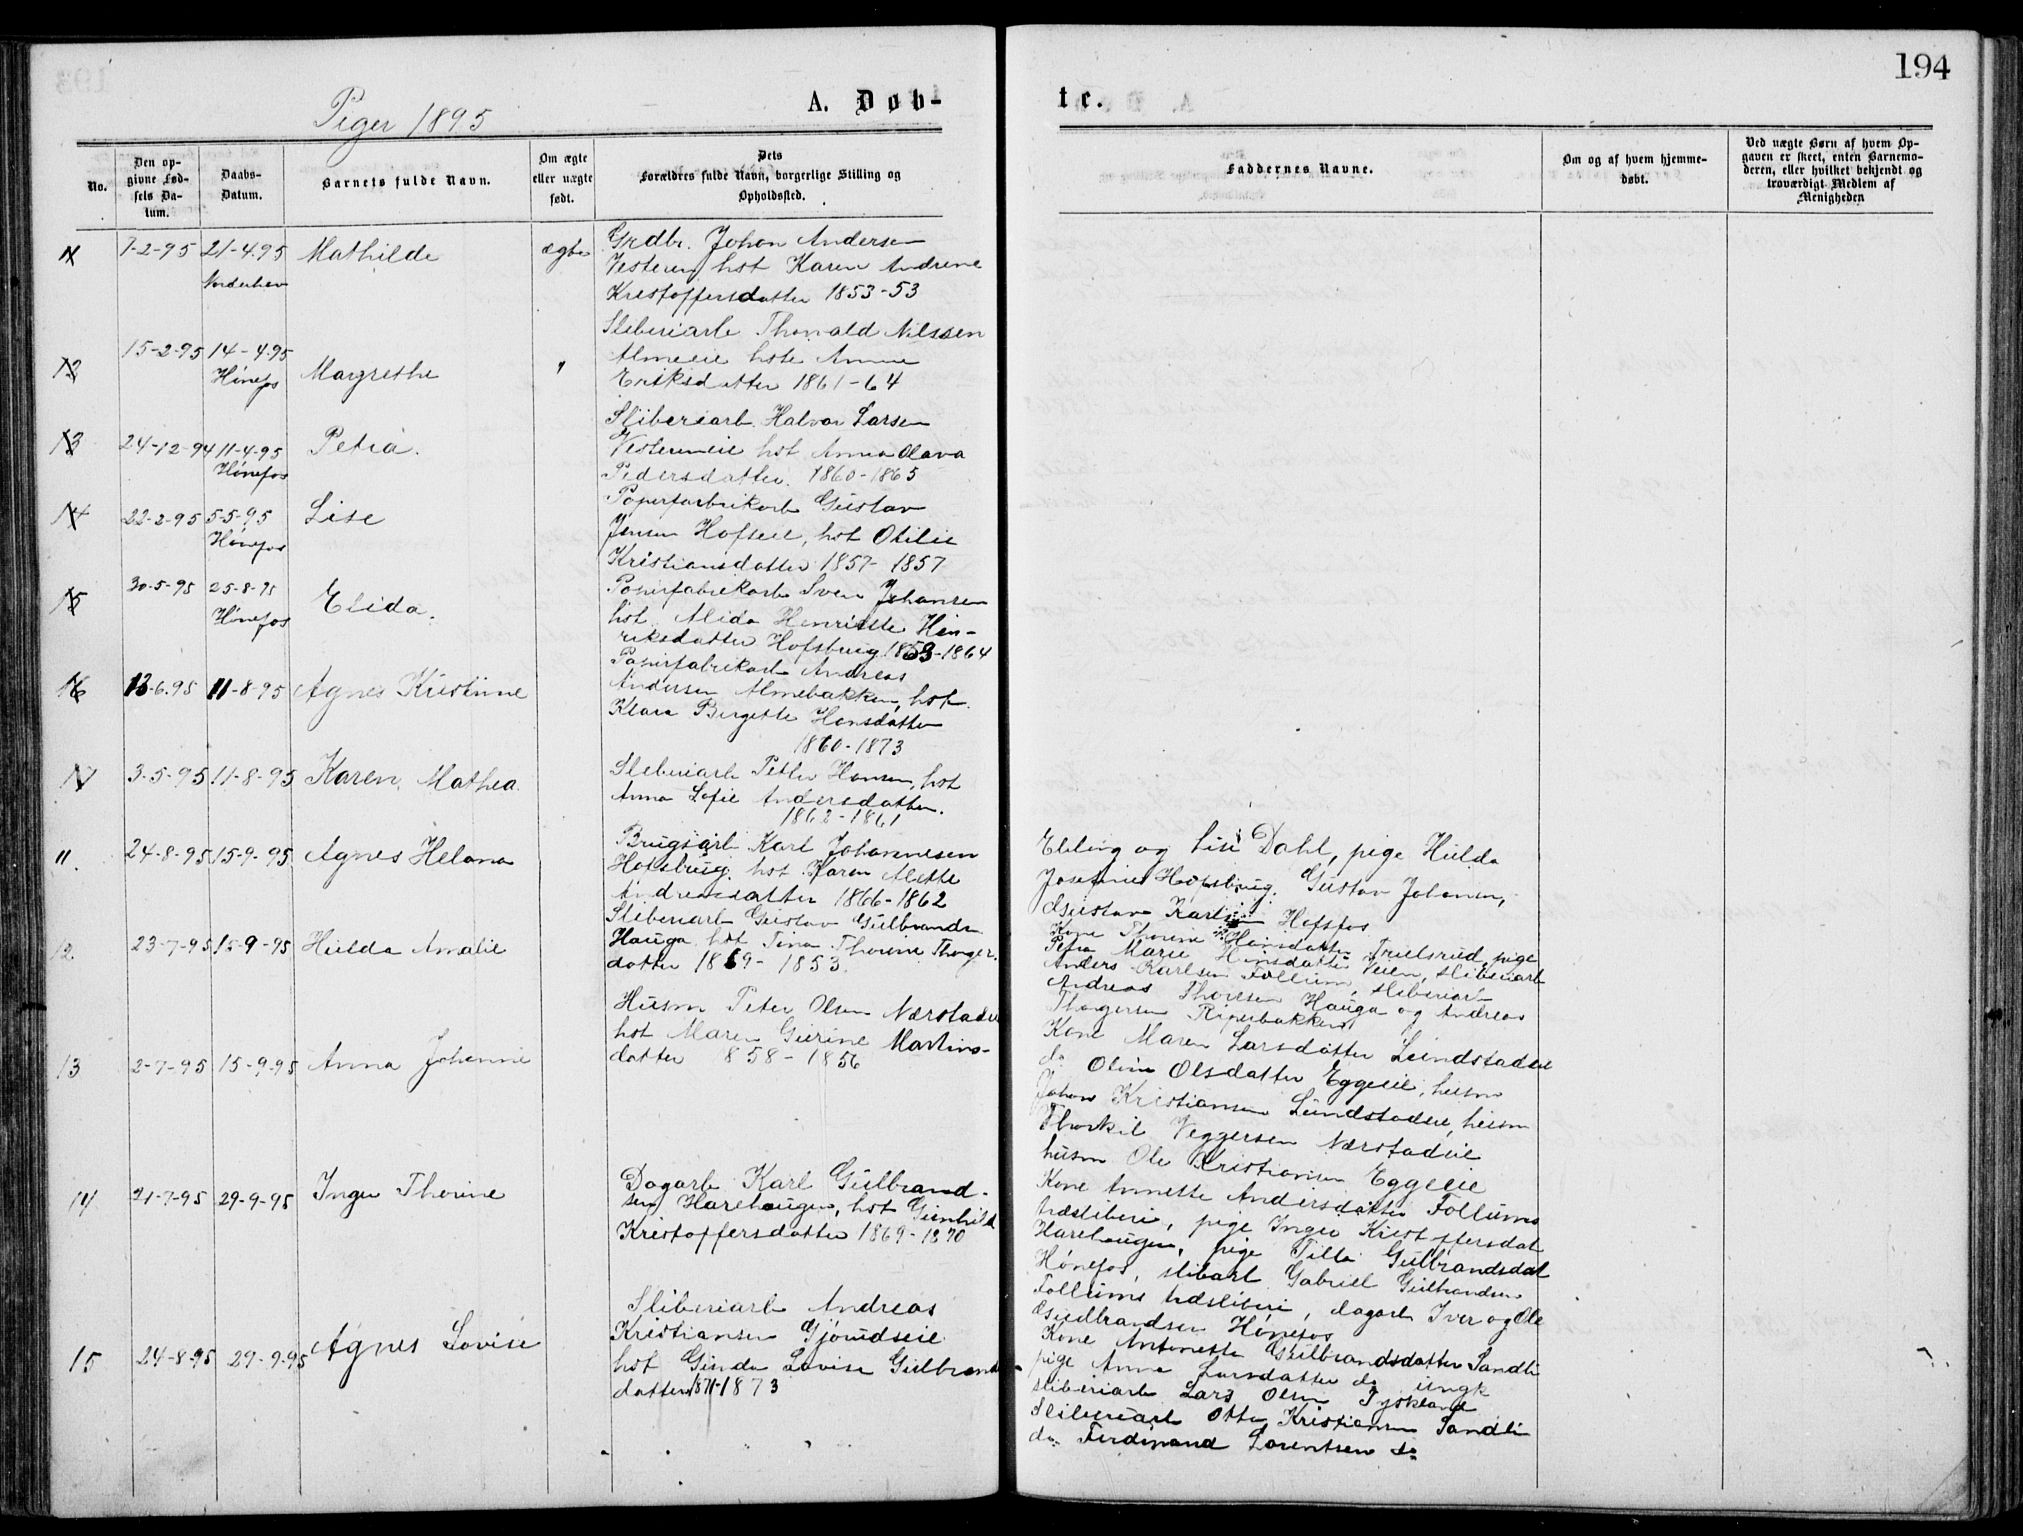 194
Piger 1895
A. Døb-
te.
No.
Den op-
givne Fød-
sels Da-
tum.
Daabs-
Datum.
Barnets fulde Navn.
Om ægte
eller uægte
født.
Dets
Forældres fulde Navn, borgerlige Stilling og
Opholdssted.
Faddernes Navne.
Om og af hvem hjemme-
døbt.
Ved uægte Børn af hvem Op-
gaven er skeet, enten Barnemo-
deren, eller hvilket bekjendt og
troværdigt Medlem af
Menigheden
7-2-95 21-4-95 Mathilde ægte
Norderhov
Grdbr. Johan Andersen
Vesteren hst Karen Andrine
Kristoffersdatter 1853-53
15-2-95 14-4-95
Hønefos Margrethe "
Sliberiarb Thorvald Nilssen
Almeeie hst Anne
Eriksdatter 1861-64
13 24-12-94 11-4-95 Petra.
Hønefos
Sliberiarb. Halvor Larsen
Vesterneie hst Anna Olava
Pedersdatter. 1860-1865
14 22-2-95 5-5-95 Lise
Hønefos
Papirfabrikarb Gustav
Jensen Hofseie, hst Otilie
Kristiansdatter 1857-1857
15 30-5-95 25-8-95
Hønefos Elida.
Papirfabrikarb Sven Johansen
hst. Alida Henriette Hen-
riksdatter Hofsbrug 1863-1864
16 13-6-95 11-8-95 Agnes Kristine
Papirfabrikarb Andreas
Andersen Almebakken, hst.
Klara Bergette Hansdatter
1860-1873
3-5-95 11-8-95 Karen Mathea.
Sliberiarb Petter Hansen, hst
Anna Sofie Andersdatter.
1862-1861
11. 24-8-95 15-9-95 Agnes Helena
Brugsarb Karl Johannesen
Hofsbrug. hst. Karen Alette
Andreasdatter 1866-1862
Elling og Lise Dahl, pige Hulda
Josefine Hofsbrug. Gustav Johansen,
Gustav Hofsfos
12 23-7-95 15-9-95 Hulda Amalie
Sliberiarb Gustav Gulbrands
Hauga hst Tina Thorine Thorger.
datter 1869-1853.
Kone Thorine Hansdatter Truelsrud, pige
Petra Marie Hansdatter Veien, sliberiarb
Anders Karlsen Follum, sliberiarb
Andreas Thorsen Hauga og Andreas
Thorgersen Piperbakken
13 2-7-95 15-9-95 Anna Johanne
Husm Peter Olsen Nærstadei
hst Maren Gurine Martins-
datter 858-1856
Kone Maren Larsdatter Lundstadeie
do Oline Olsdatter Eggeeie, husm
Johan Kristiansen Lundstadeie, husm
Thorkil Veggersen Nærstadeie
husm Ole Kristiansen Eggeeie
14 21-7-95 29-9-95 Inga Thorine
Dagarb Karl Gulbrand-
sen Harehaugen, hst Gunhild
Kristoffersdatter 1869-1870
Kone Annette Andersdatter Follums
træsliberi, pige Inga Kristoffersdat
Harehaugen, pige Tilla Gulbrandsdat
Hønefos, slibarb Gabriel Gulbrandsen
Follums træsliberi, dagarb Iver og Ole
Gulbrandsen Hønefos
15 24-8-95 29-9-95 Agnes Lovise
Sliberiarb Andreas
Kristiansen Gjøsudseie
hst Ginda Lovise Gulbrands
datter 1871-1873
Kone Antonette Gulbrandsdatter Sandli
pige Anne Larsdatter do ungk
sliberiarb Lars Olsen Tyskland
Sliberiarb Otto Kristiansen Sandli
do. Ferdinand Lorentsen do